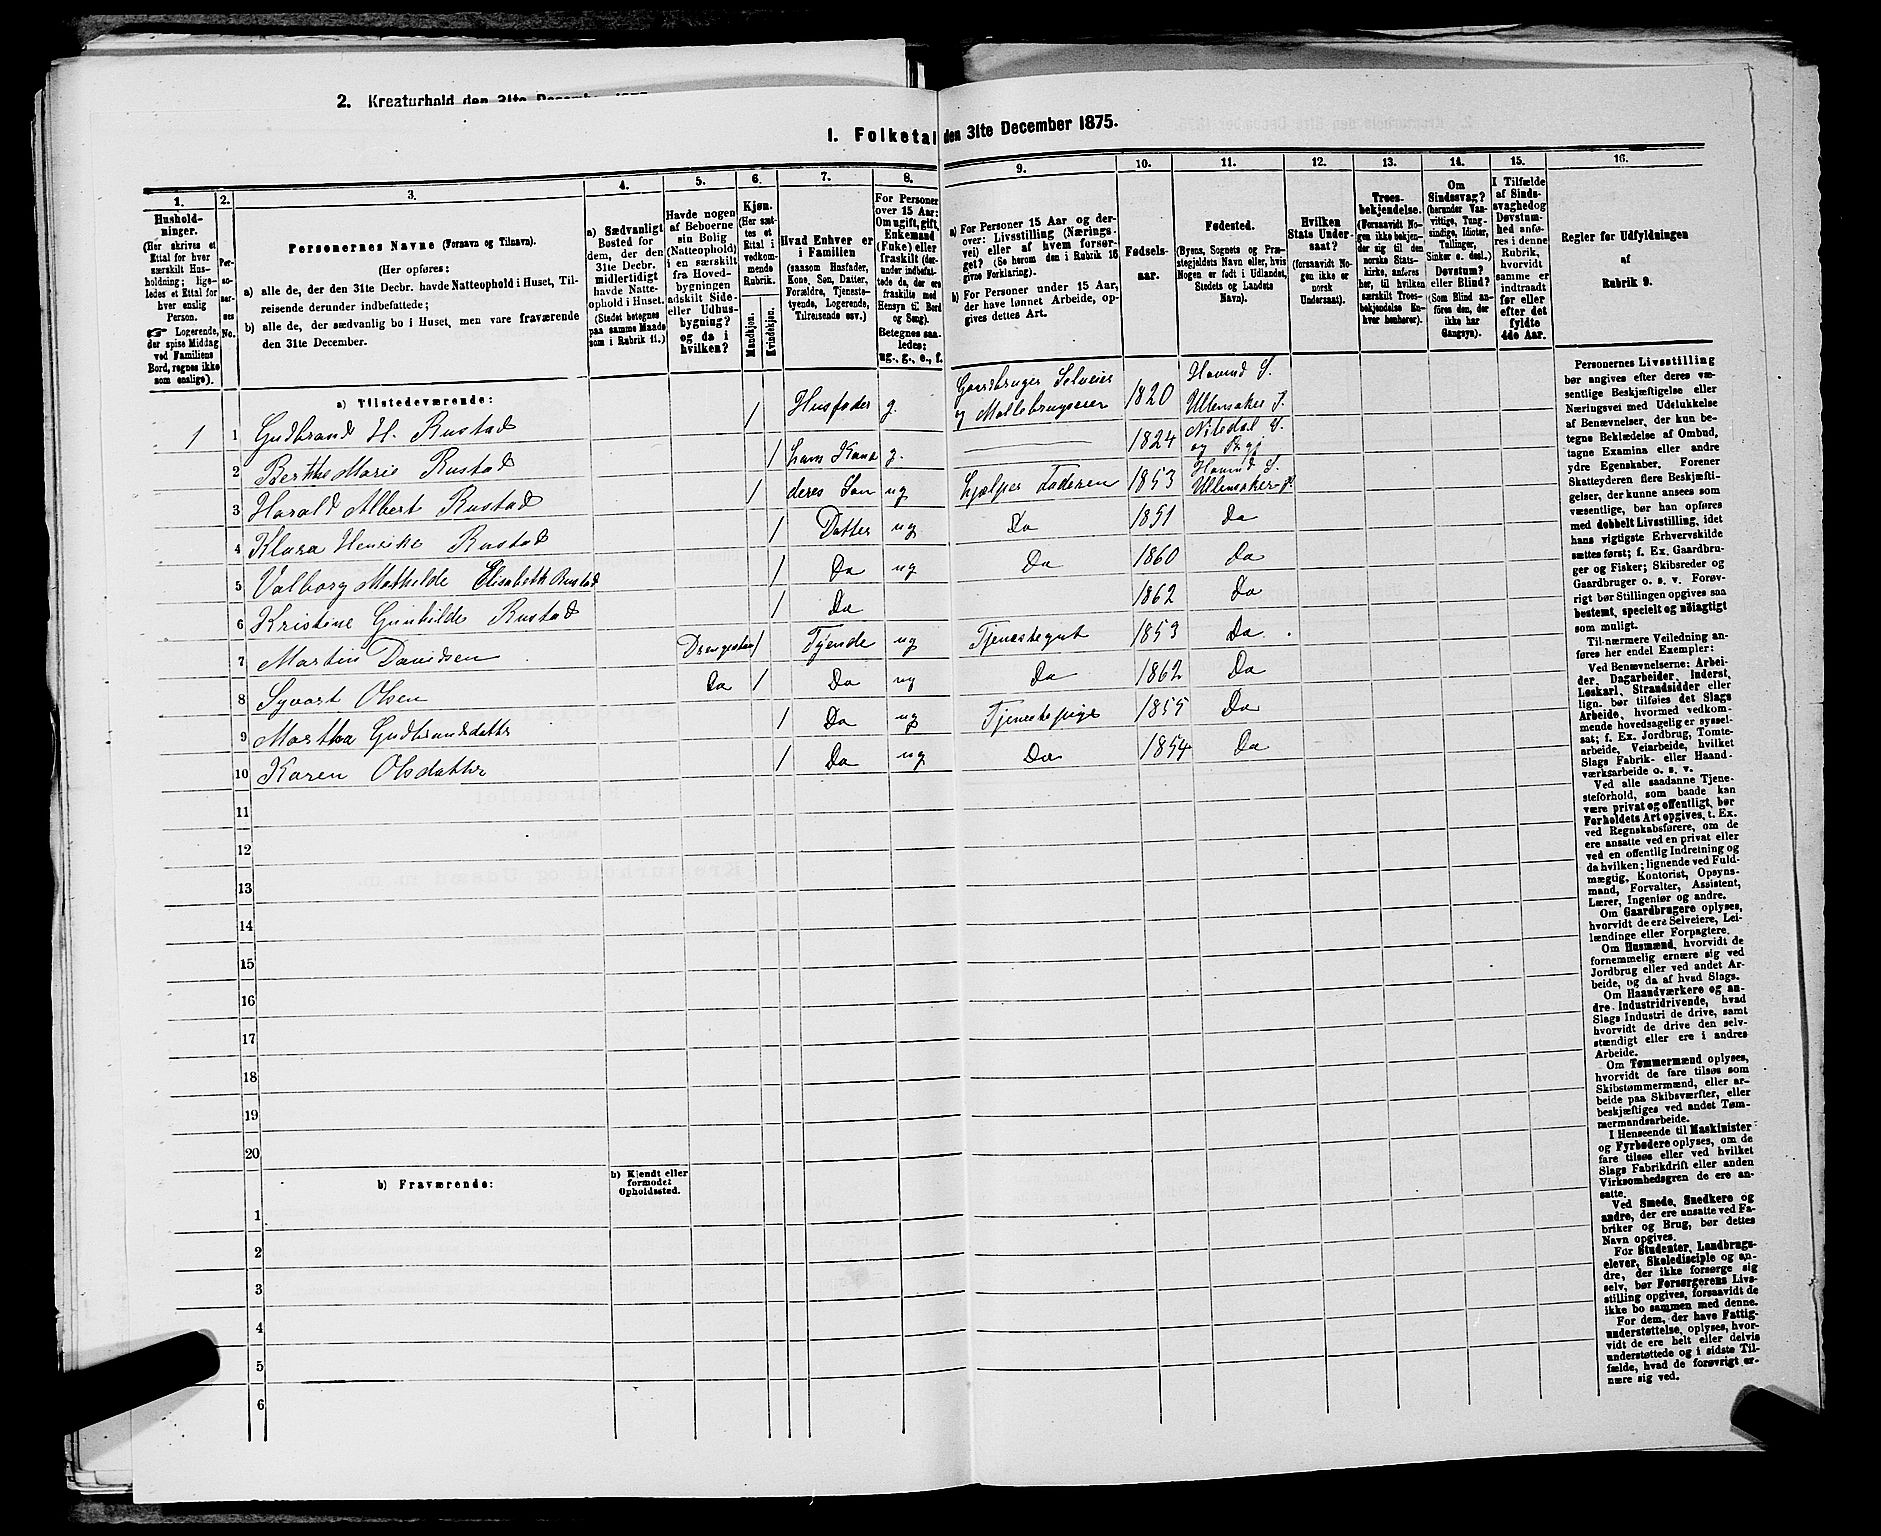 2. Kreaturhold den 31te December 1875
1. Folketal den 31te December 1875.
1. 2. 3. 4. 5. 6. 7. 8. 9. 10. 11. 12. 13. 14. 15. 16.
Hushold-
ninger.
(Her skrives et
Ettal for hver
særskilt Hus-
holdning; lige-
ledes et Ettal for
hver enslig
Person.
☞ Logerende,
der spise Middag
ved Familiens
Bord, regnes ikke
som enslige).
Per-
so-
ner-
nes
No.
Personernes Navne (Fornavn og Tilnavn).
(Her opføres:
a) alle de, der den 31te Decbr. havde Natteophold i Huset, Til-
reisende derunder indbefattede;
b) alle de, der sædvanlig bo i Huset, men vare fraværende
den 31te December.
a) Sædvanligt
Bosted for
dem, der den
31te Decbr.
midlertidigt
havde Natte-
ophold i Huset.
(Stedet betegnes
paa samme Maade
som i Rubrik 11.)
Havde nogen
af Beboerne
sin Bolig
(Natteophold)
i en særskilt
fra Hoved-
bygningen
adskilt Side-
eller Udhus-
bygning?
og da i
hvilken?
Kjøn.
(Her sæt-
tes et
Ettal i
vedkom-
mende
Rubrik.
Mandkjøn.
Kvindekjøn.
Hvad Enhver er
i Familien
(saasom Husfader,
Kone, Søn, Datter,
Forældre, Tjeneste-
tyende, Logerende,
Tilreisende osv.)
For Personer
over 15 Aar:
Om ugift, gift,
Enkemand
(Enke) eller
fraskilt (der-
under indbefat-
tede de, der ere
fraskilte med
Hensyn til Bord
og Seng).
Betegnes saa-
ledes:
ug., g., e., f.
a) For Personer 15 Aar og der-
over: Livsstilling (Nærings-
vei) eller af hvem forsør-
get? (Se herom den i Rubrik 16
givne Forklaring).
b) For Personer under 15 Aar,
der have lønnet Arbeide, op-
gives dettes Art.
Fødsels-
aar.
Fødested.
(Byens, Sognets og Præ-
stegjeldets Navn eller, hvis
Nogen er født i Udlandet,
Stedets og Landets
Navn).
Hvilken
Stats Under-
saat?
(forsaavidt No-
gen ikke er
norsk
Undersaat).
Troes-
bekjendelse.
(Forsaavidt No-
gen ikke bekjen-
der sig til den
norske Stats-
kirke, anføres
her, til hvilken
særskilt Troes-
bekjendelse En-
hver henhører).
Om
Sindssvag?
(herunder Van-
vittige, Tung-
sindige, Idioter,
Tullinger,
Sinker o. desl.)
Døvstum?
eller Blind?
(Som Blind an-
føres den, der
ikke har
Gangsyn).
I Tilfælde
af Sinds-
svaghed og
Døvstum-
hed anfø-
res i denne
Rubrik,
hvorvidt
samme er
indtraadt
før eller
efter det
fyldte
4de Aar.
Regler for Udfyldningen
af
Rubrik 9.
a) Tilstedeværende:
1 1 Gudbrand H. Rustad 1 Husfader g. Gaardbruger Selveier og Møllebrugseier 1820 Hovind S. Ullensaker P.
2 Berthe Marie Rustad 1 hans Kone g. 1824 Nitedal S. og Prgj
3 Harald Albert Rustad 1 deres Søn ug hjælper Faderen 1853 Hovind S. Ullensaker P.
4 Klara Henrike Rustad 1 Datter ug Do 1851 Do
5 Valborg Mathilde Elisabeth Rustad 1 Do ug Do 1860 Do
6 Kristine Gunhilde Rustad 1 Do 1862 Do
7 Martin Davidsen 1 Tyende ug Tjenestegut 1853 Do
8 Syvart Olsen Do 1 Do ug Do 1862 Do
9 Martha Gudbrandsdatter 1 Do ug Tjenestepige 1855 Do
10 Karen Olsdatter 1 Do ug Do 1854 Do
11
12
13
14
15
16
17
18
19
20
b) Fraværende:
b) Kjendt eller
formodet
Opholdssted.
1
2
3
4
5
6
Personernes Livsstilling
bør angives efter deres væ-
sentlige Beskjæftigelse eller
Næringsvei med Udelukkelse
af Benævnelser, der kun be-
tegne Beklædelse af Ombud,
tagne Examina eller andre
ydre Egenskaber. Forener
Skatteyderen flere Beskjæfti-
gelser, der kunne ansees som
væsentlige, bør han opføres
med dobbelt Livsstilling, idet
hans vigtigste Erhvervskilde
sættes først; f. Ex. Gaardbru-
ger og Fisker; Skibsreder og
Gaardbruger o. s. v. Forøv-
rigt bør Stillingen opgives saa
bestemt, specielt og nøiagtigt
som muligt.
Til nærmere Veiledning an-
føres her endel Exempler:
Ved Benævnelserne: Arbei-
der, Dagarbeider, Inderst,
Løskarl, Strandsidder eller
lign. bør tilføies det Slags
Arbeide, hvormed vedkom-
mende hovedsagelig er syssel-
sat; f. Ex. Jordbrug, Tomte-
arbeide, Veiarbeide, hvilket
Slags Fabrik- eller Haand-
værksarbeide o. s. v.
Ved alle saadanne Tjene-
steforhold, som baade kan
være privat og offentligt, bør
Forholdets Art opgives, t. Ex.
ved Regnskabsførere, om de
ere ansatte ved en privat eller
ved en offentlig Indretning og
da hvilken; lignende ved Fuld-
mægtig, Kontorist, Opsyns-
mand, Forvalter, Assistent,
Lærer, Ingeniør og andre.
Om Gaardbrugere oplyses,
hvorvidt de ere Selveiere, Lei-
lændinge eller Forpagtere.
Om Husmænd, hvorvidt de
fornemmelig ernære sig ved
Jordbrug eller ved andet Ar-
beide, og da af hvad Slags.
Om Haandværkere og an-
dre Industridrivende, hvad
Slags Industri de drive, samt
hvorvidt de drive den selv-
stændigt eller ere i andres
Arbeide.
Om Tømmermænd oplyses,
hvorvidt de fare tilsøs som
Skibstømmermænd, eller ar-
beide paa Skibsværfter, eller
beskjæftiges ved andet Tøm-
mermandsarbeide.
I Henseende til Maskinister
og Fyrbødere oplyses, om de
fare tilsøs eller ved hvilket
Slags Fabrikdrift eller anden
Virksomhedsgren de ere an-
satte.
Ved Smede, Snedkere og
andre, der ere ansatte ved Fa-
briker og Brug, bør dettes
Navn opgives.
For Studenter, Landbrugs-
elever, Skoledisciple og an-
dre, der ikke forsørge sig
selv, bør Forsørgerens Livs-
stilling opgives, forsaavidt de
ikke bo sammen med denne.
For dem, der have Fattig-
understøttelse, oplyses, hvor-
vidt de ere helt eller delvis
understøttede og i sidste Til-
fælde, hvad de forøvrigt er-
nære sig ved.